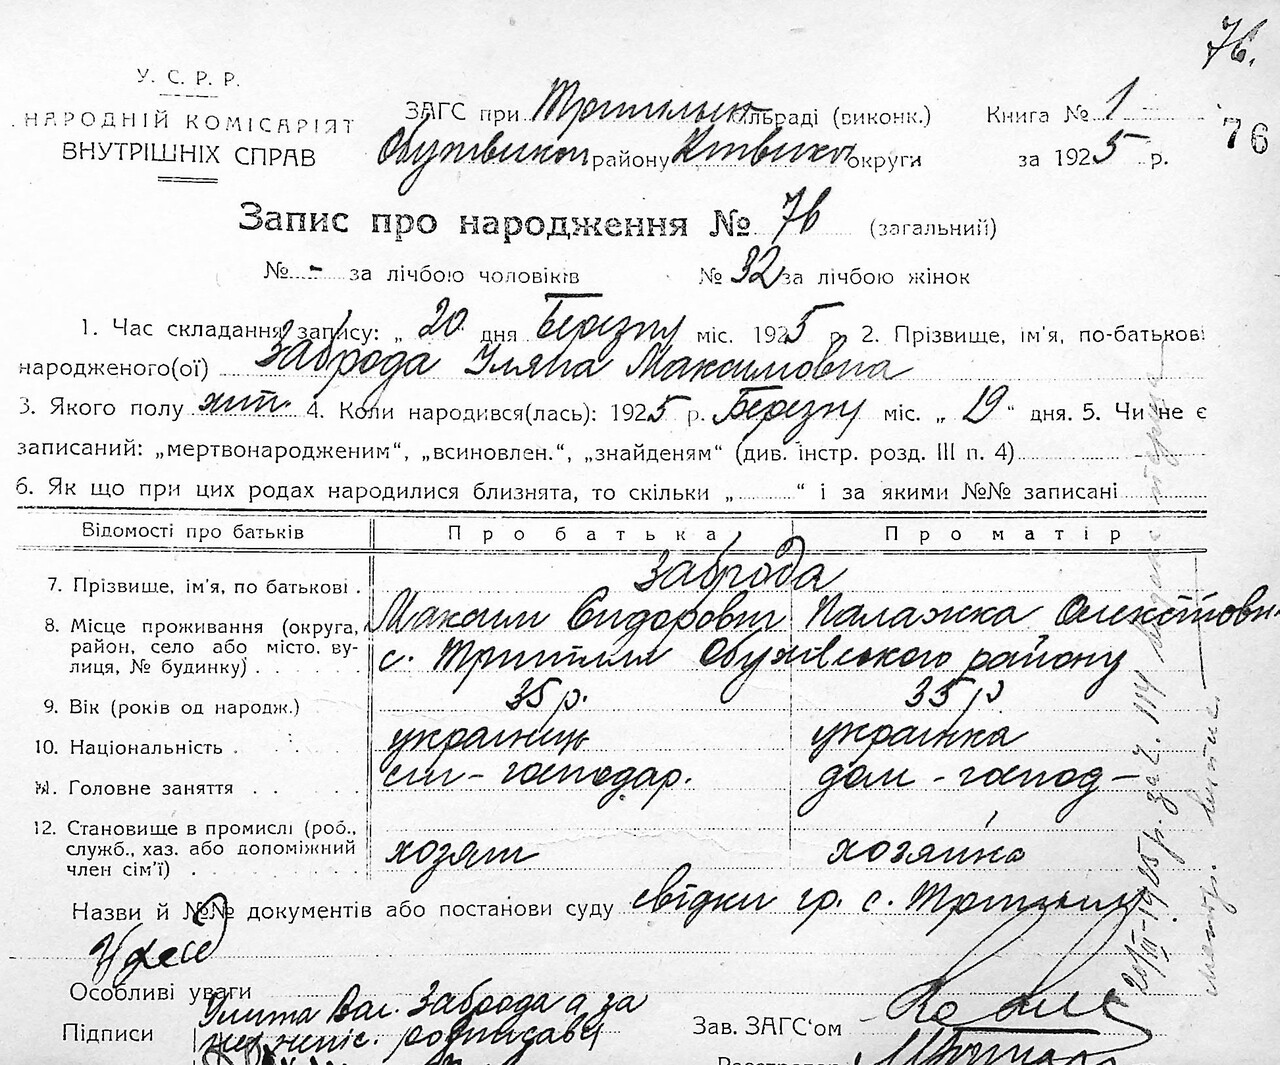 76.
У. С. Р. Р.
НАРОДНІЙ КОМІСАРІЯТ
ВНУТРІШНІХ СПРАВ
ЗАГС при сільраді (виконк.) Книга № 1
району округи за 1925 р.
76
Запис про народження № 76 (загальний)
№ - за лічбою чоловіків № 32 за лічбою жінок
1. Час складання запису: „ 20 дня Березня міс. 1925 р. 2. Прізвище, ім'я, по-батькові
народженого(ої) Заброда Уляна Максимовна
3. Якого полу жін. 4. Коли народився(лась): 1925 р. Березня міс. „ 19 " дня. 5. Чи не є
записаний: „мертвонародженим", „всиновлен.", „знайденям" (див. інстр. розд. III п. 4)
6. Як що при цих родах народилися близнята, то скільки „ " і за якими №№ записані
Відомості про батьків Про батька Про матір
7. Прізвище, ім'я, по батькові . Заброда
Максим Сидорович Палажка
8. Місце проживання (округа, район, село або місто, вулиця, № будинку) . . с. Трипілля Обухівського району
9. Вік (років од народж.) 35 р. 35 р
10. Національність . українець українка
11. Головне заняття . . сіл-господар. дом-господ-
12. Становище в промислі (роб., служб., хаз. або допоміжний член сім'ї) . хозяїн хозяйка
Назви й №№ документів або постанови суду свідки гр. с. Трипілля
Особливі уваги
Підписи Заброда а за
розписався
Зав. ЗАГС'ом